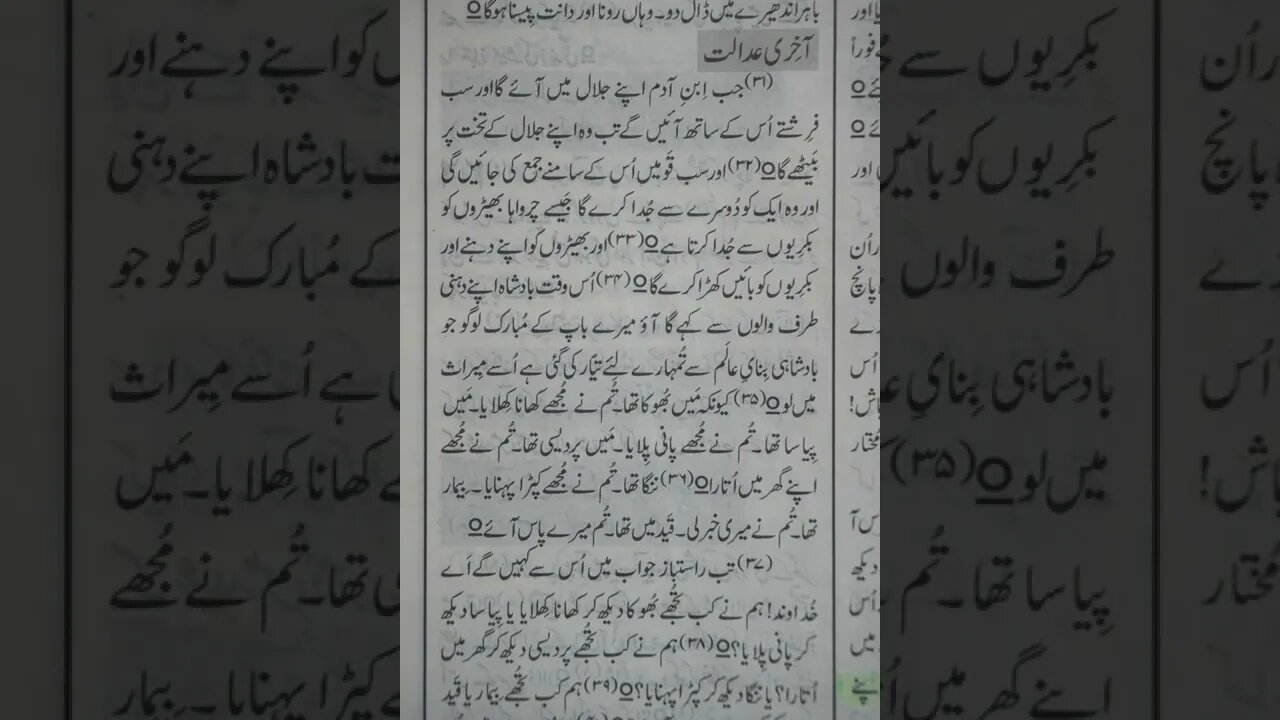 باہر اندھیرے میں ڈال دو۔ وہاں رونا اور دانت پیسنا ہوگا O
آخری عدالت
(۳۱) جب اِبنِ آدم اپنے جلال میں آئے گا اور سب
فرِشتے اُس کے ساتھ آئیں گے تب وہ اپنے جلال کے تخت پر
بَیٹھے گا O (۳۲) اور سب قَومیں اُس کے سامنے جمع کی جائیں گی
اور وہ ایک کو دُوسرے سے جُدا کرے گا جَیسے چرواہا بھیڑوں کو
بکرِیوں سے جُدا کرتا ہے O (۳۳) اور بھیڑوں کو اپنے دہنے اور
بکرِیوں کو بائیں کھڑا کرے گا O (۳۴) اُس وقت بادشاہ اپنے دہنی
طرف والوں سے کہے گا آؤ میرے باپ کے مُبارک لوگو جو
بادشاہی بِنایِ عالَم سے تُمہارے لِئے تیّار کی گئی ہے اُسے مِیراث
میں لو O (۳۵) کیونکہ مَیں بُھوکا تھا۔ تُم نے مُجھے کھانا کھِلایا۔ مَیں
پِیاسا تھا۔ تُم نے مُجھے پانی پِلایا۔ مَیں پردیسی تھا۔ تُم نے مُجھے
اپنے گھر میں اُتارا O (۳۶) ننگا تھا۔ تُم نے مُجھے کپڑا پہنایا۔ بِیمار
تھا۔ تُم نے میری خبر لی۔ قَید میں تھا۔ تُم میرے پاس آئے O
(۳۷) تب راستباز جواب میں اُس سے کہیں گے اَے
خُداوند! ہم نے کب تُجھے بُھوکا دیکھ کر کھانا کھِلایا یا پِیاسا دیکھ
کر پانی پِلایا؟ O (۳۸) ہم نے کب تُجھے پردیسی دیکھ کر گھر میں
اُتارا؟ یا ننگا دیکھ کر کپڑا پہنایا؟ O (۳۹) ہم کب تُجھے بِیمار یا قَید